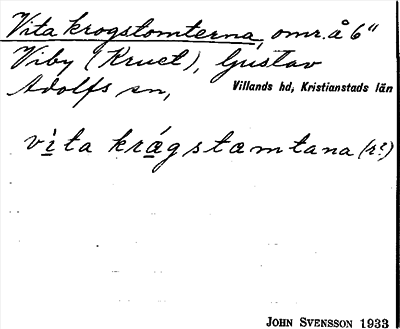 Vita krogstomterna, omr. å 6"
Viby (Kruet), Gustav
Adolfs sn, Villands hd, Kristianstads län
vìta krágstæmtana (r?)
JOHN SVENSSON 1933